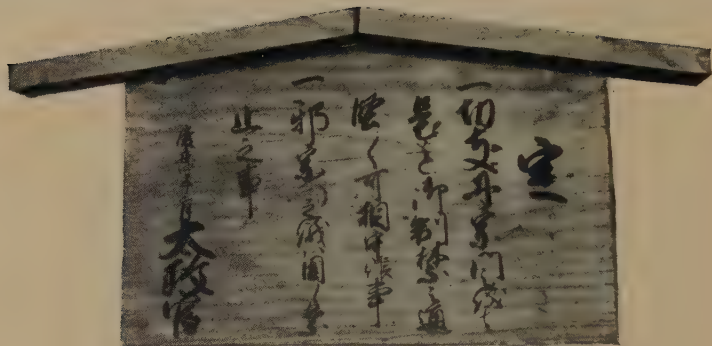 定
一切支丹宗門之儀者
是迄御制禁之通
堅く可相守候事
一邪宗門之儀固ク禁
止之事
慶應四年三月 太政官